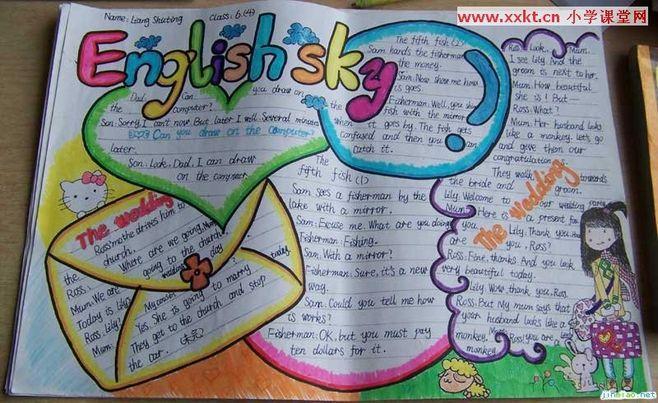 www.xxkt.cn 小学课堂网
Name: Liang Shuting Class: 6.(4)
English sky
Dad: Can you draw on
the computer?
Son: Sorry, I can't now. But later I will. Several minutes
later.
Can you draw on the computer?
Son: Look, Dad. I can draw
on the computer.
The fifth fish (2)
Sam hands the fisherman
the money.
Sam: Now show me how
it goes
Fisherman: Well, you show
the fish with the mirror
when it goes by. The fish gets
confused and then you can
catch it.
The
fifth fish (1)
Sam sees a fisherman by the
lake with a mirror.
Sam: Excuse me. What are you doing?
Fisherman: Fishing.
Sam: With a mirror?
Fisherman: Sure, it's a new
way.
Sam: Could you tell me how
it works?
Fisherman: OK, but you must pay
ten dollars for it.
The wedding
Ross: mo the drives him to
the church.
Ross: Where are we going, Mum?
Mum: We are going to the church.
Today is Lily's wedding day
Ross: Lily? My cousin
Mum: Yes. She is going to marry today.
They get to the church and stop
the car.
The wedding
Ross: Look, Mum.
I see Lily. And the
groom is next to her.
Mum: How beautiful
she is! But
Ross: What?
Mum: Her husband looks
like a monkey. Let's go
and give them our
congratulation.
They walk towards
the bride and groom.
Lily: Welcome to our wedding party
Mum: Here is a present for
you.
Lily: Thank you. How
are you, Ross?
Ross: Fine, thanks. And you look
very beautiful today.
Lily: Wow, thank you, Ross.
Ross: But My mum says that
your husband looks like a
monkey.
Mum: Ross, you are
monkey
jinmiao.net